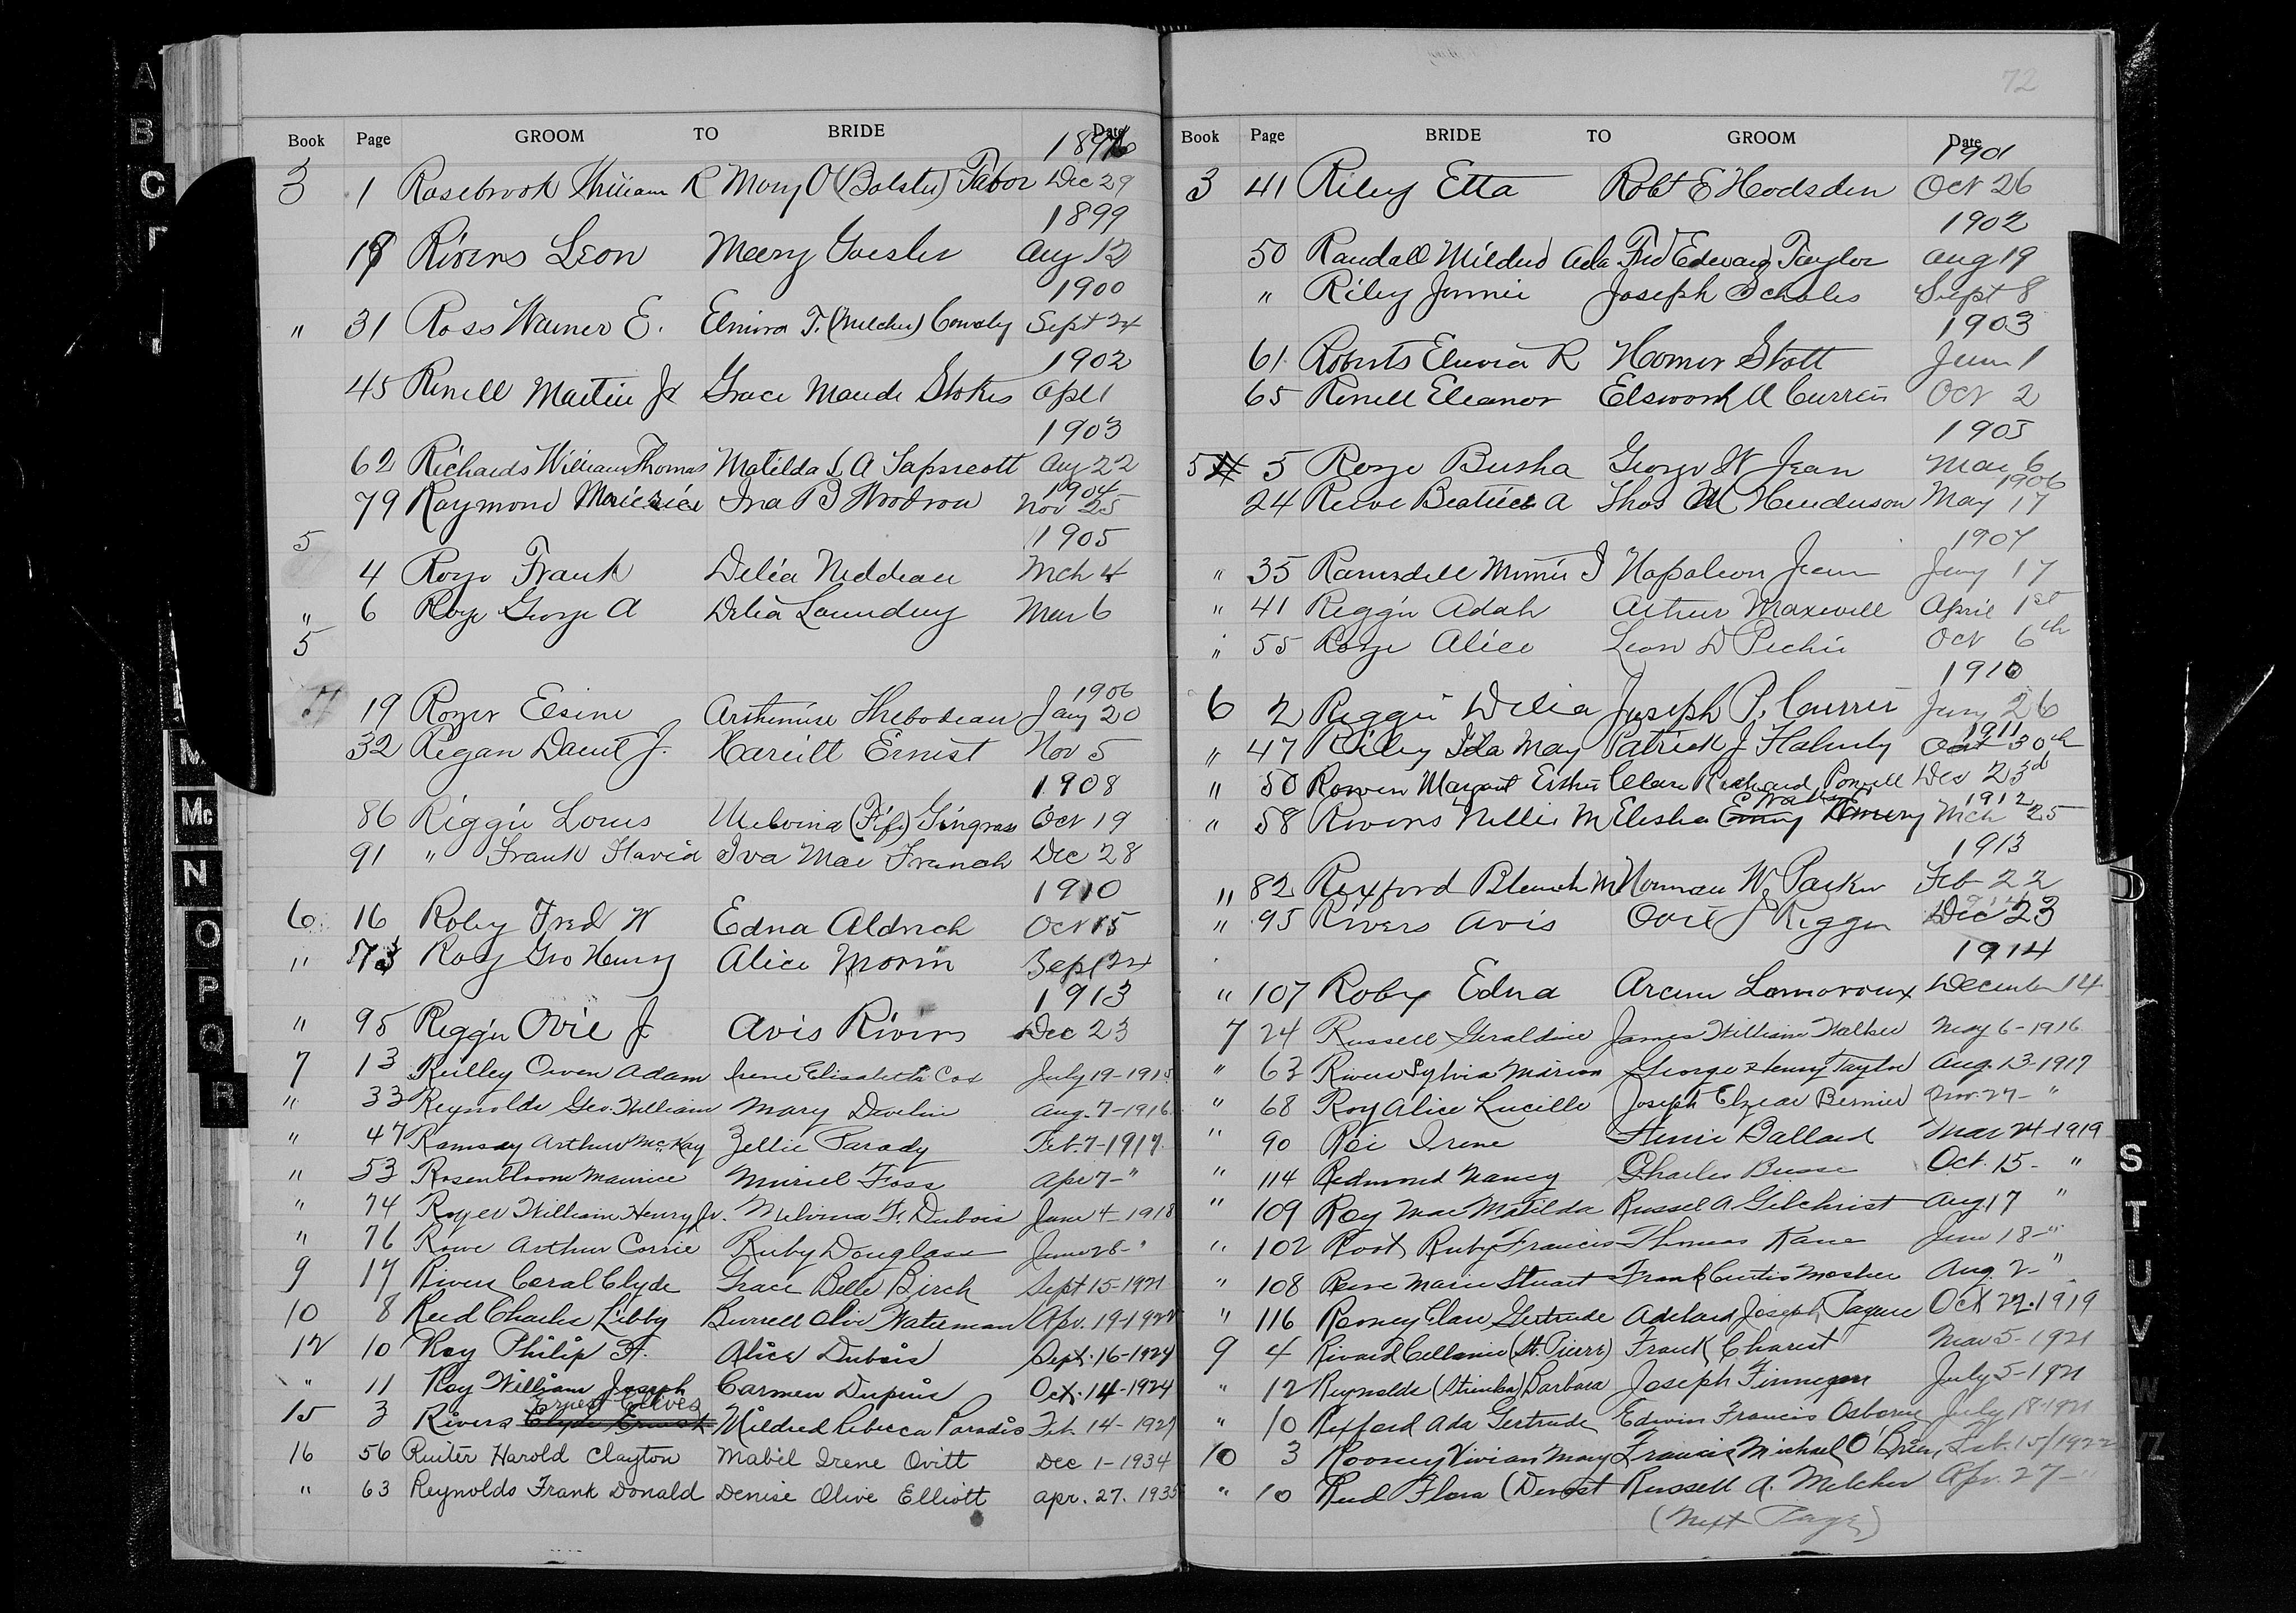 A
B
C
M
Mc
N
O
P
Q
R
Book Page GROOM TO BRIDE Date
1896
3 1 Rosebrook William R Mary O (Bolster) Tabor Dec 29
1899
18 Rivers Leon Mary Goesler Aug 12
1900
" 31 Ross Warner E. Elmira T. (Melcher) Sept 24
1902
45 Rinell Martin Jr Grace Maude Stokes Apl 1
1903
62 Richards William Thomas Matilda L A Tapscott Aug 22
1904
79 Raymond Ina B Woodrow Nov 25
5 1905
4 Rozo Frank Delia Neddeau Mch 4
" 6 Roye George A Delia Laundery Mar 6
5
1906
19 Rozer Elsine Arthemise Thebodeau Jany 20
32 Regan Daniel J. Harriett Ernest Nov 5
1908
86 Riggie Louis Melvina (Fifi) Gingrass Oct 19
91 " Frank Flavid Iva Mae Franch Dec 28
1910
6 16 Roby Fred W Edna Aldrich Oct 15
" 73 Roy Geo Henry Alice Morin Sept 24
1913
" 95 Riggie Ovie J Avis Rivers Dec 23
7 13 Reilley Owen Adam Irene Elisabeth Cox July 19-1915
" 33 Reynolds Geo. William Mary Develin Aug. 7-1916
" 47 Ramsay Arthur McKay Zellie Parady Feb. 7-1917
" 53 Rosenbloom Maurice Muriel Foss Apr 7- "
" 74 Roger William Henry Jr. Melvina F. Dubois June 4-1918
" 76 Rowe Arthur Corrie Ruby Douglass June 28- "
9 17 Rivers Coral Clyde Grace Belle Birch Sept 15-1921
10 8 Reed Charles Libby Burrell Olive Waterman Apr. 19-1922
12 10 Roy Philip A. Alice Dubois Sept. 16-1924
" 11 Roy William Joseph Carmen Dupuis Oct. 14-1924
Ernest Elives
15 3 Rivers Clyde Ernest Mildred Rebecca Paradis Feb. 14-1927
16 56 Ruiter Harold Clayton Mabel Irene Ovitt Dec 1-1934
" 63 Reynolds Frank Donald Denise Olive Elliott Apr. 27. 1935
72
Book Page BRIDE TO GROOM Date
1901
3 41 Riley Etta Robt E Hodsden Oct 26
1902
50 Randall Mildred Ada Fred Edward Taylor Aug 19
" Riley Jennie Joseph Scholes Sept 8
1903
61 Roberts Elmira R Homer Stott June 1
65 Rinell Eleanor Elsworth A Currier Oct 2
1905
5 5 Rozo Busha George W Jean Mar 6
1906
24 Reeve Beatrice A Thos M Henderson May 17
1907
" 35 Ramsdell Minnie I Napoleon Jean Jany 17
" 41 Riggie Adah Arthur Maxwell April 1st
" 55 Rozo Alice Leon D Pechie Oct 6th
1910
6 2 Riggie Delia Joseph P. Currier Jany 26
1911
" 47 Riley Ida May Patrick J Flaherty Oct 30th
" 50 Rowen Margaret Esther Clare Richard Powell Dec 23d
1912
" 58 Rivers Nellie M Elisha Emery Mch 25
1913
" 82 Rexford Blanch M Norman W. Parker Feb 22
" 95 Rivers Avis Ovie J Riggie Dec 23
1914
" 107 Roby Edna Arcem Lamoroux December 14
7 24 Russell Geraldine James William Walker May 6-1916
" 63 Rivers Sylvia Marion George Henry Taylor Aug. 13-1917
" 68 Roy Alice Lucille Joseph Elzear Bernier Nov. 27- "
" 90 Roi Irene Henri Ballard Mar 24-1919
" 114 Redmond Nancy Charles Busse Oct. 15- "
" 109 Roy Mae Matilda Russel A Gilchrist Aug 17 "
" 102 Root Ruby Francis Thomas Kane June 18- "
" 108 Rose Marie Stuart Frank Curtis Mosher Aug. 2- "
" 116 Rooney Clare Gertrude Adelard Joseph Paquee Oct 22-1919
9 4 Rivard Cellanie (St. Pierre) Frank Charest Mar 5-1921
" 12 Reynolds (Stinka) Barbara Joseph Finnegan July 5-1921
" 10 Rexford Ada Gertrude Edwin Francis Osborne July 18-1921
10 3 Rooney Vivian Mary Francis Michael O'Brien Feb. 15/1922
" 10 Reed Flora (Derost Russell A. Melcher Apr. 27- "
(Next Page)
S
T
U
V
W
YZ